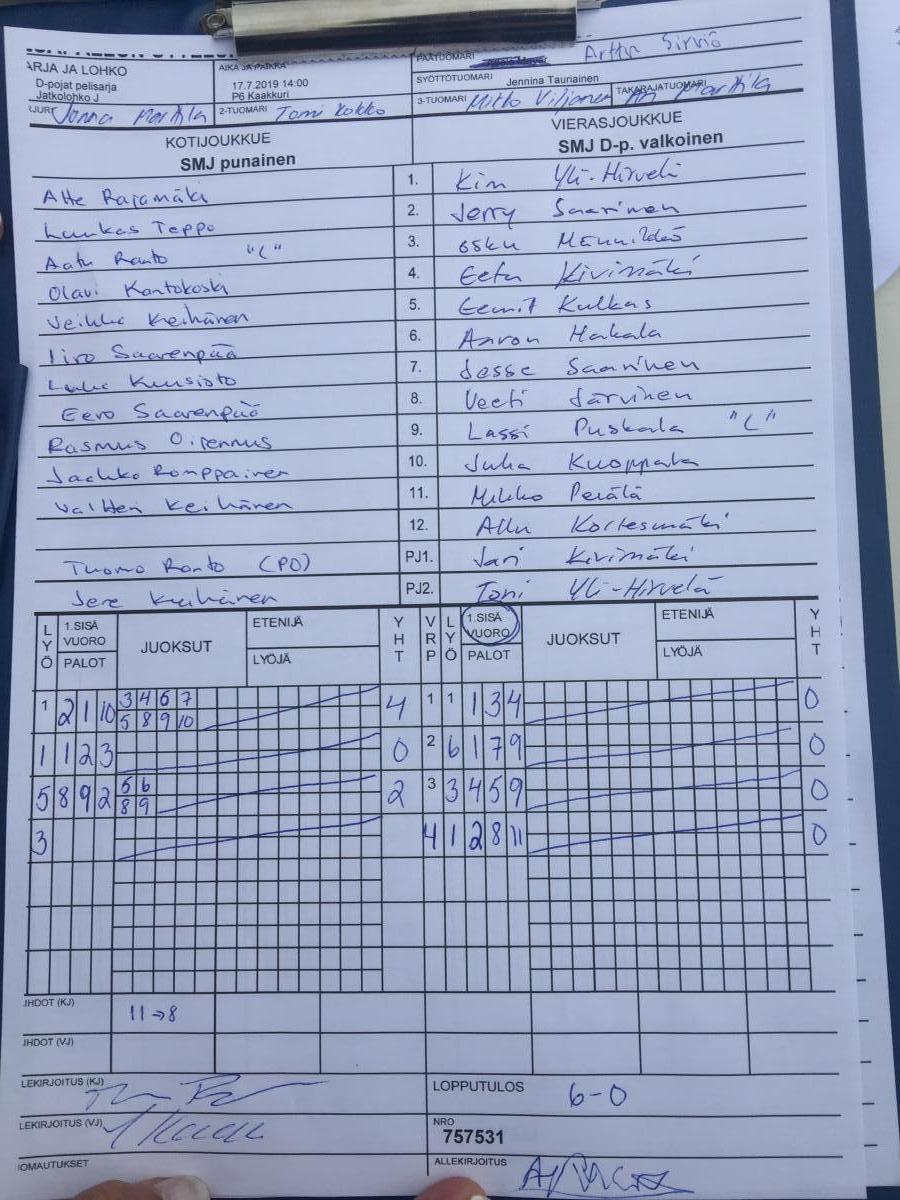 ARJA JA LOHKO
D-pojat pelisarja
Jatkolohko J
AIKA JA PAIKKA
17.7.2019 14:00
P6 Kaakkuri
PÄÄTUOMARI Arttu Sirviö
SYÖTTÖTUOMARI Jennina Tauriainen
Jonna Marttila 2-TUOMARI Tomi Kokko 3-TUOMARI Mitko Viljanen TAKARAJATUOMARI Marttila
KOTIJOUKKUE VIERASJOUKKUE
SMJ punainen SMJ D-p. valkoinen
Atte Rajamäki 1. Kim Yli-Hirvelä
Luukas Teppo 2. Jerry Saarinen
Aatu Ranto "L" 3. Osku
Olavi Kontokoski 4. Eetu Kivimäki
Veikko Keihänen 5. Eemil Kulkas
Iiro Saarenpää 6. Aaron Hakala
Kuusisto 7. Jesse Saarinen
Eero Saarenpää 8. Veeti Järvinen
Rasmus 9. Lassi Puskala "L"
Jaakko Romppainen 10. Juha Kuoppala
Valtteri Keihänen 11. Mikko Perälä
12. Allu Kortesmäki
Tuomo Ranto (PO) PJ1. Jari Kivimäki
Jere Keihänen PJ2. Toni Yli-Hirvelä
LYÖ 1.SISÄ VUORO PALOT JUOKSUT ETENIJÄ LYÖJÄ YHT VRP LYÖ 1.SISÄ VUORO PALOT JUOKSUT ETENIJÄ LYÖJÄ YHT
1 2 1 10 3 4 6 7 4 1 1 1 3 4 0
5 8 9 10
1 1 2 3 0 2 6 1 7 9 0
5 8 9 2 5 6 2 3 3 4 5 9 0
8 9
3 4 1 2 8 11 0
IHDOT (KJ) 11→8
IHDOT (VJ)
LEKIRJOITUS (KJ) LOPPUTULOS 6-0
LEKIRJOITUS (VJ) NRO 757531
OMAUTUKSET ALLEKIRJOITUS